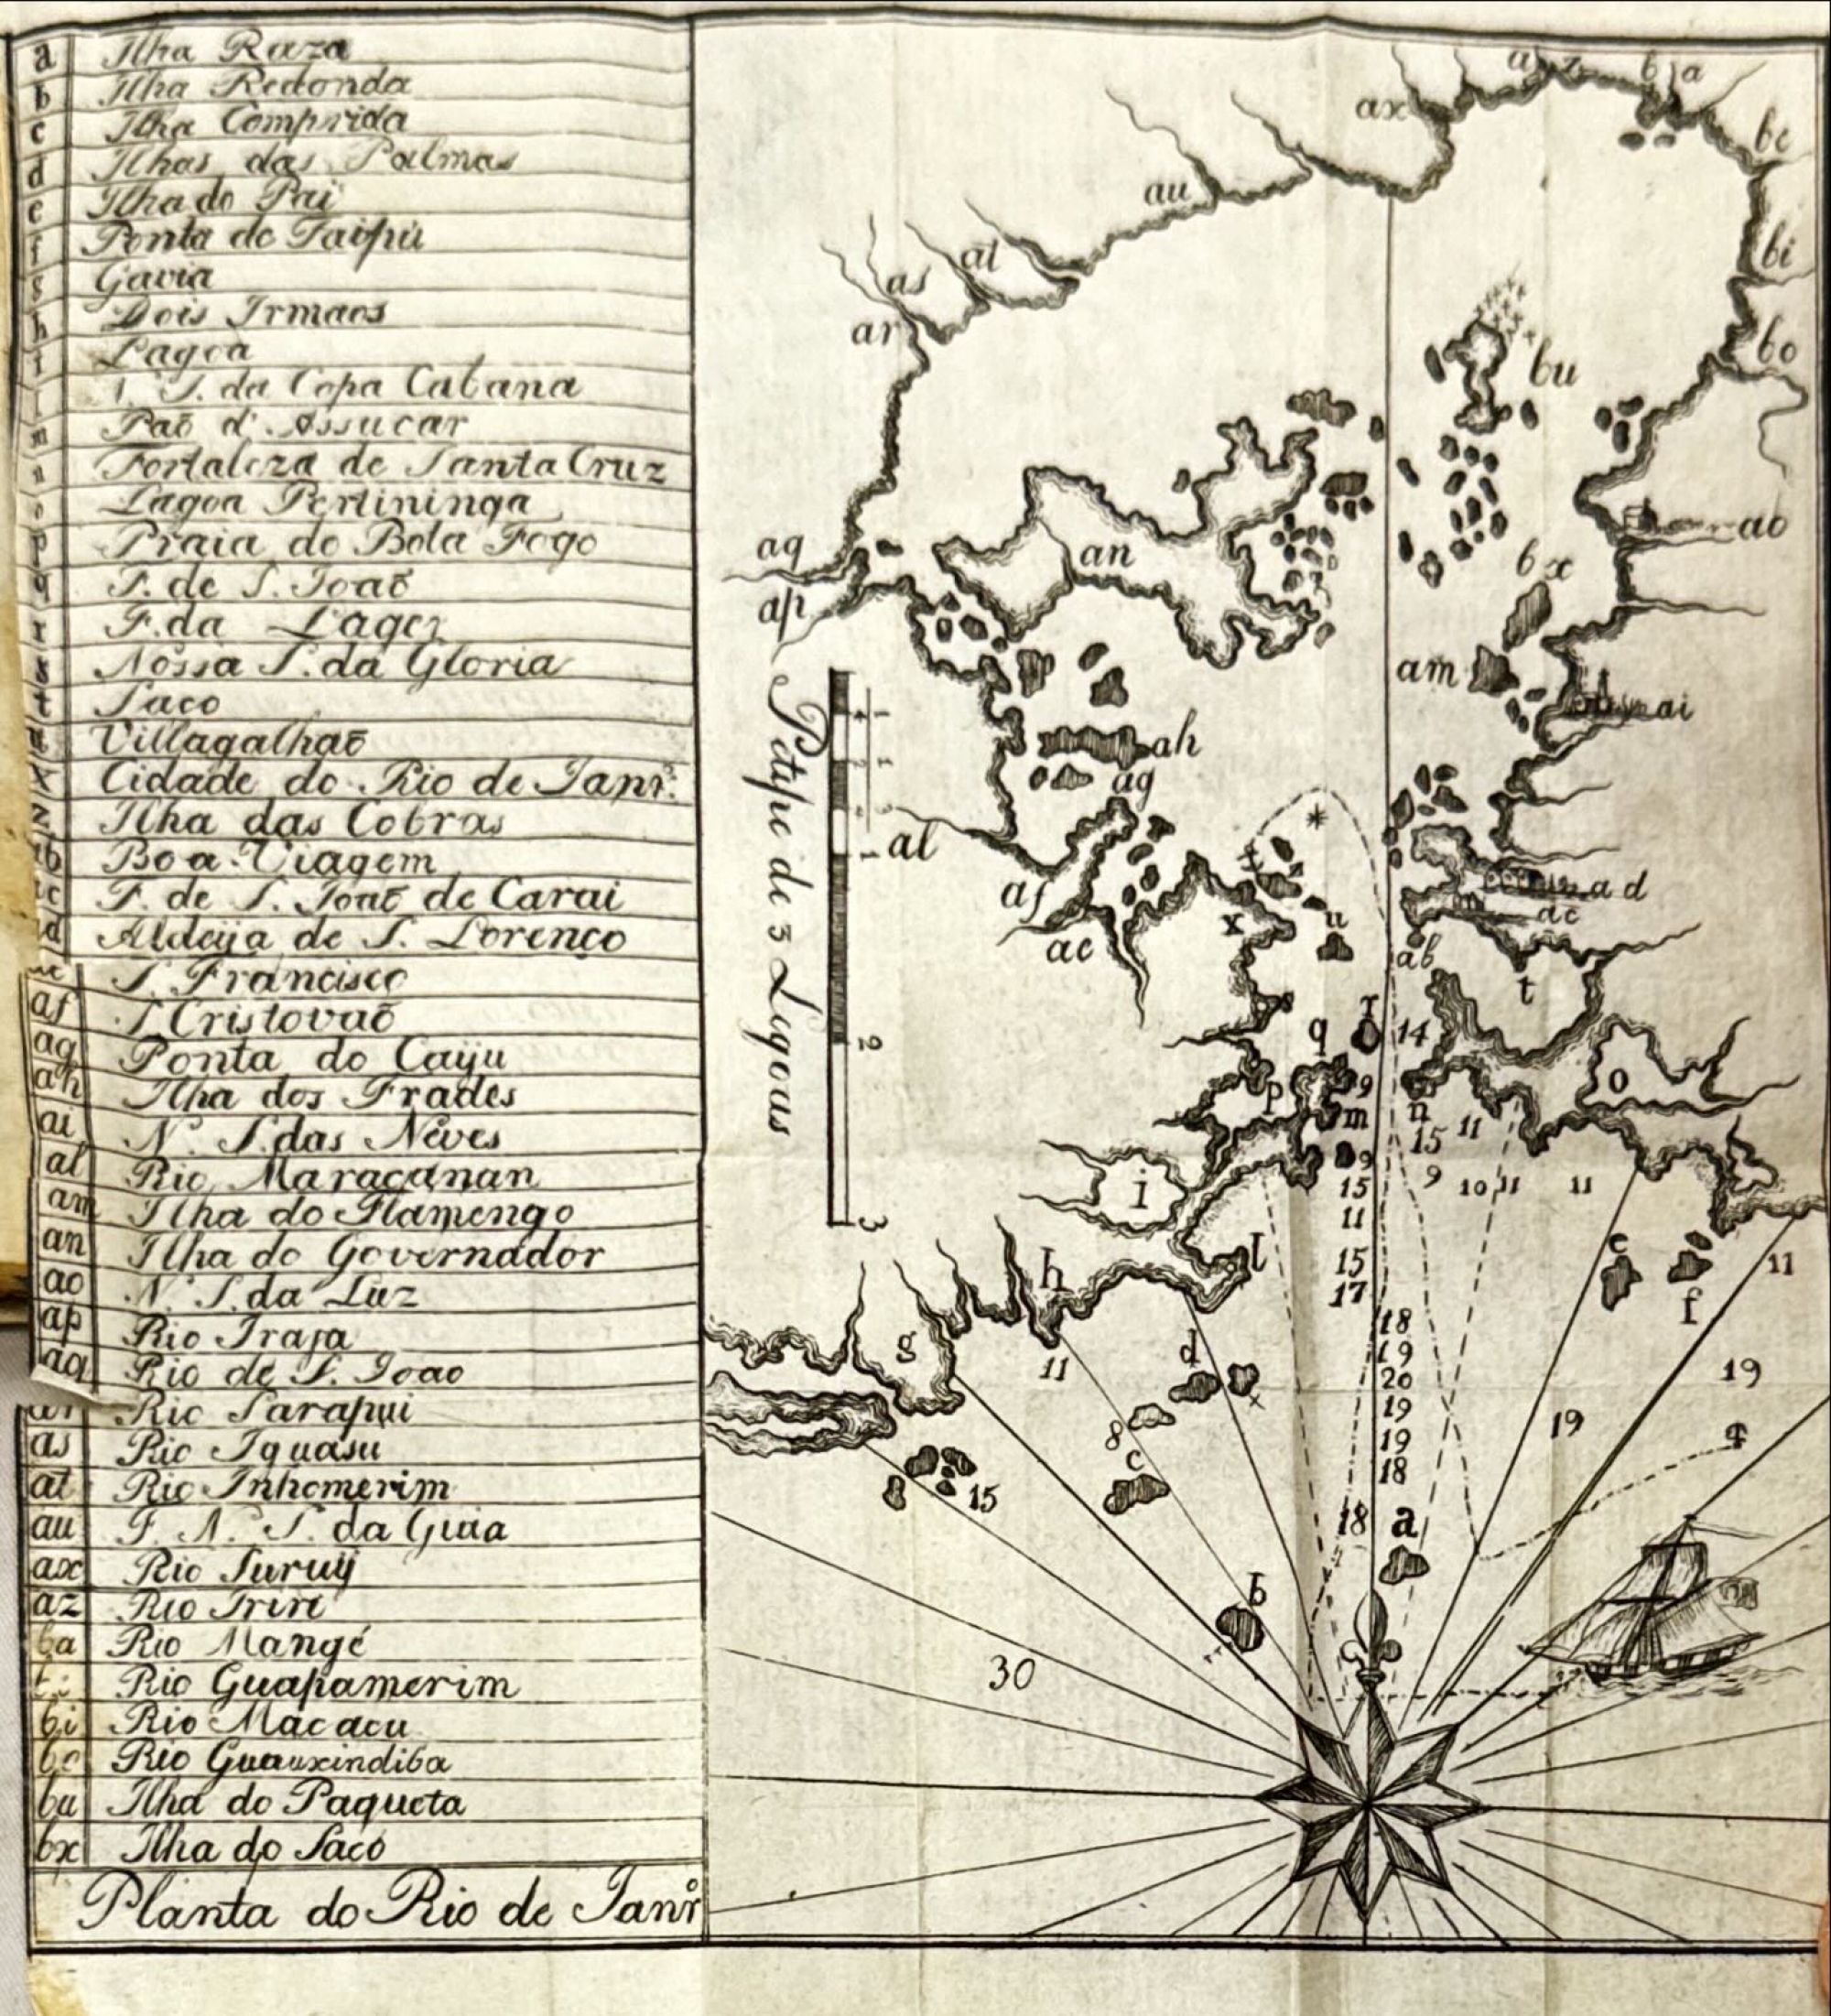 a Ilha Raza
b Ilha Redonda
c Ilha Comprida
d Ilhas das Palmas
e Ilha do Pai
f Ponta de Taipú
g Gavia
h Dois Irmaos
i Lagoa
l N. S. da Copa Cabana
m Paõ d' Assucar
n Fortaleza de Santa Cruz
o Lagoa Pertininga
p Praia do Bota Fogo
q F. de S. Ioaõ
r F. da Lage
s Nossa S. da Gloria
t Saco
u Villagalhaõ
x Cidade do Rio de Ianr.º
z Ilha das Cobras
ab Boa Viagem
ac F. de S. Ioaõ de Carai
ad Aldeija de S. Lorenço
ae S. Francisco
af S. Cristovaõ
ag Ponta do Caiju
ah Ilha dos Frades
ai N. S. das Neves
al Rio Maracanan
am Ilha do Flamengo
an Ilha do Governador
ao N. S. da Luz
ap Rio Iraja
aq Rio de S. Ioao
ar Rio Sarapui
as Rio Iguasu
at Rio Inhomerim
au F. N. S. da Guia
ax Rio Suruij
az Rio Iriri
ba Rio Mangé
Rio Guapamerim
bi Rio Macacu
bo Rio Guauxindiba
bu Ilha do Paqueta
bx Ilha do Saco
Planta do Rio de Ianrº
Petipe de 3 Legoas
1
10
3
az ba
ax
be
au
bi
at
as
ar
bo
bu
ao
aq
an
bx
ap
am
ai
ah
ag
al
af
ad
ac
x
u
ae
ab
t
s
r
q
14
o
p
9
m
n
11
15
9
9
10
11
11
15
i
11
l
15
e
h
17
11
f
18
g
11
d
19
19
20
8
19
19
c
19
18
15
18 a
b
30